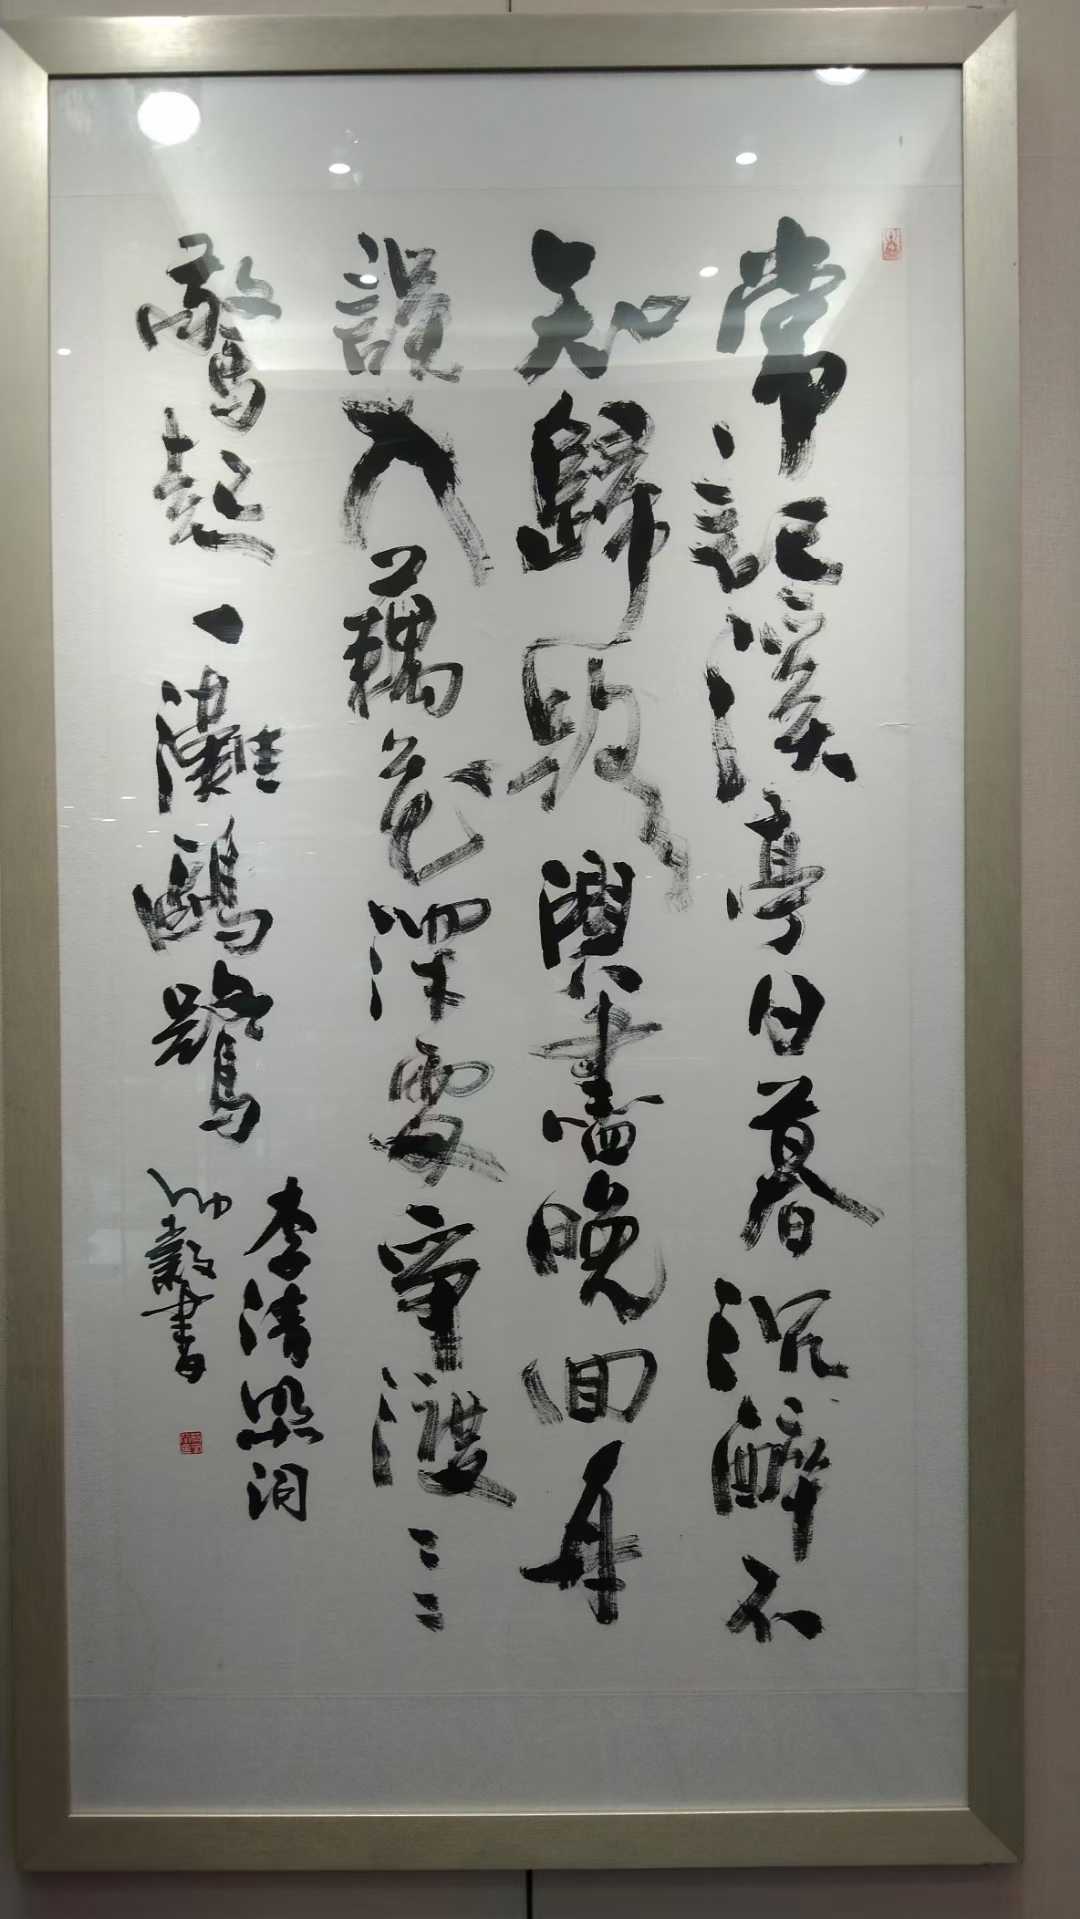 常記溪亭日暮沉醉不
知歸路興盡晚回舟
誤入藕花深處爭渡〻〻
驚起一灘鷗鷺
李清照词
毅書